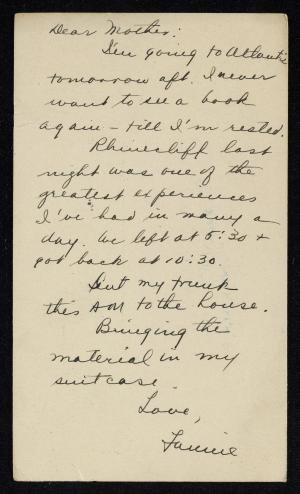 Dear Mother:
I'm going to Atlantic
tomorrow aft. I never
want to see a book
again - till I'm rested.
Rhinecliff last
night was one of the
greatest experiences
I've had in many a
day. We left at 5:30 +
got back at 10:30.
Sent my trunk
this AM to the house.
Bringing the
material in my
suitcase.
Love,
Fannie